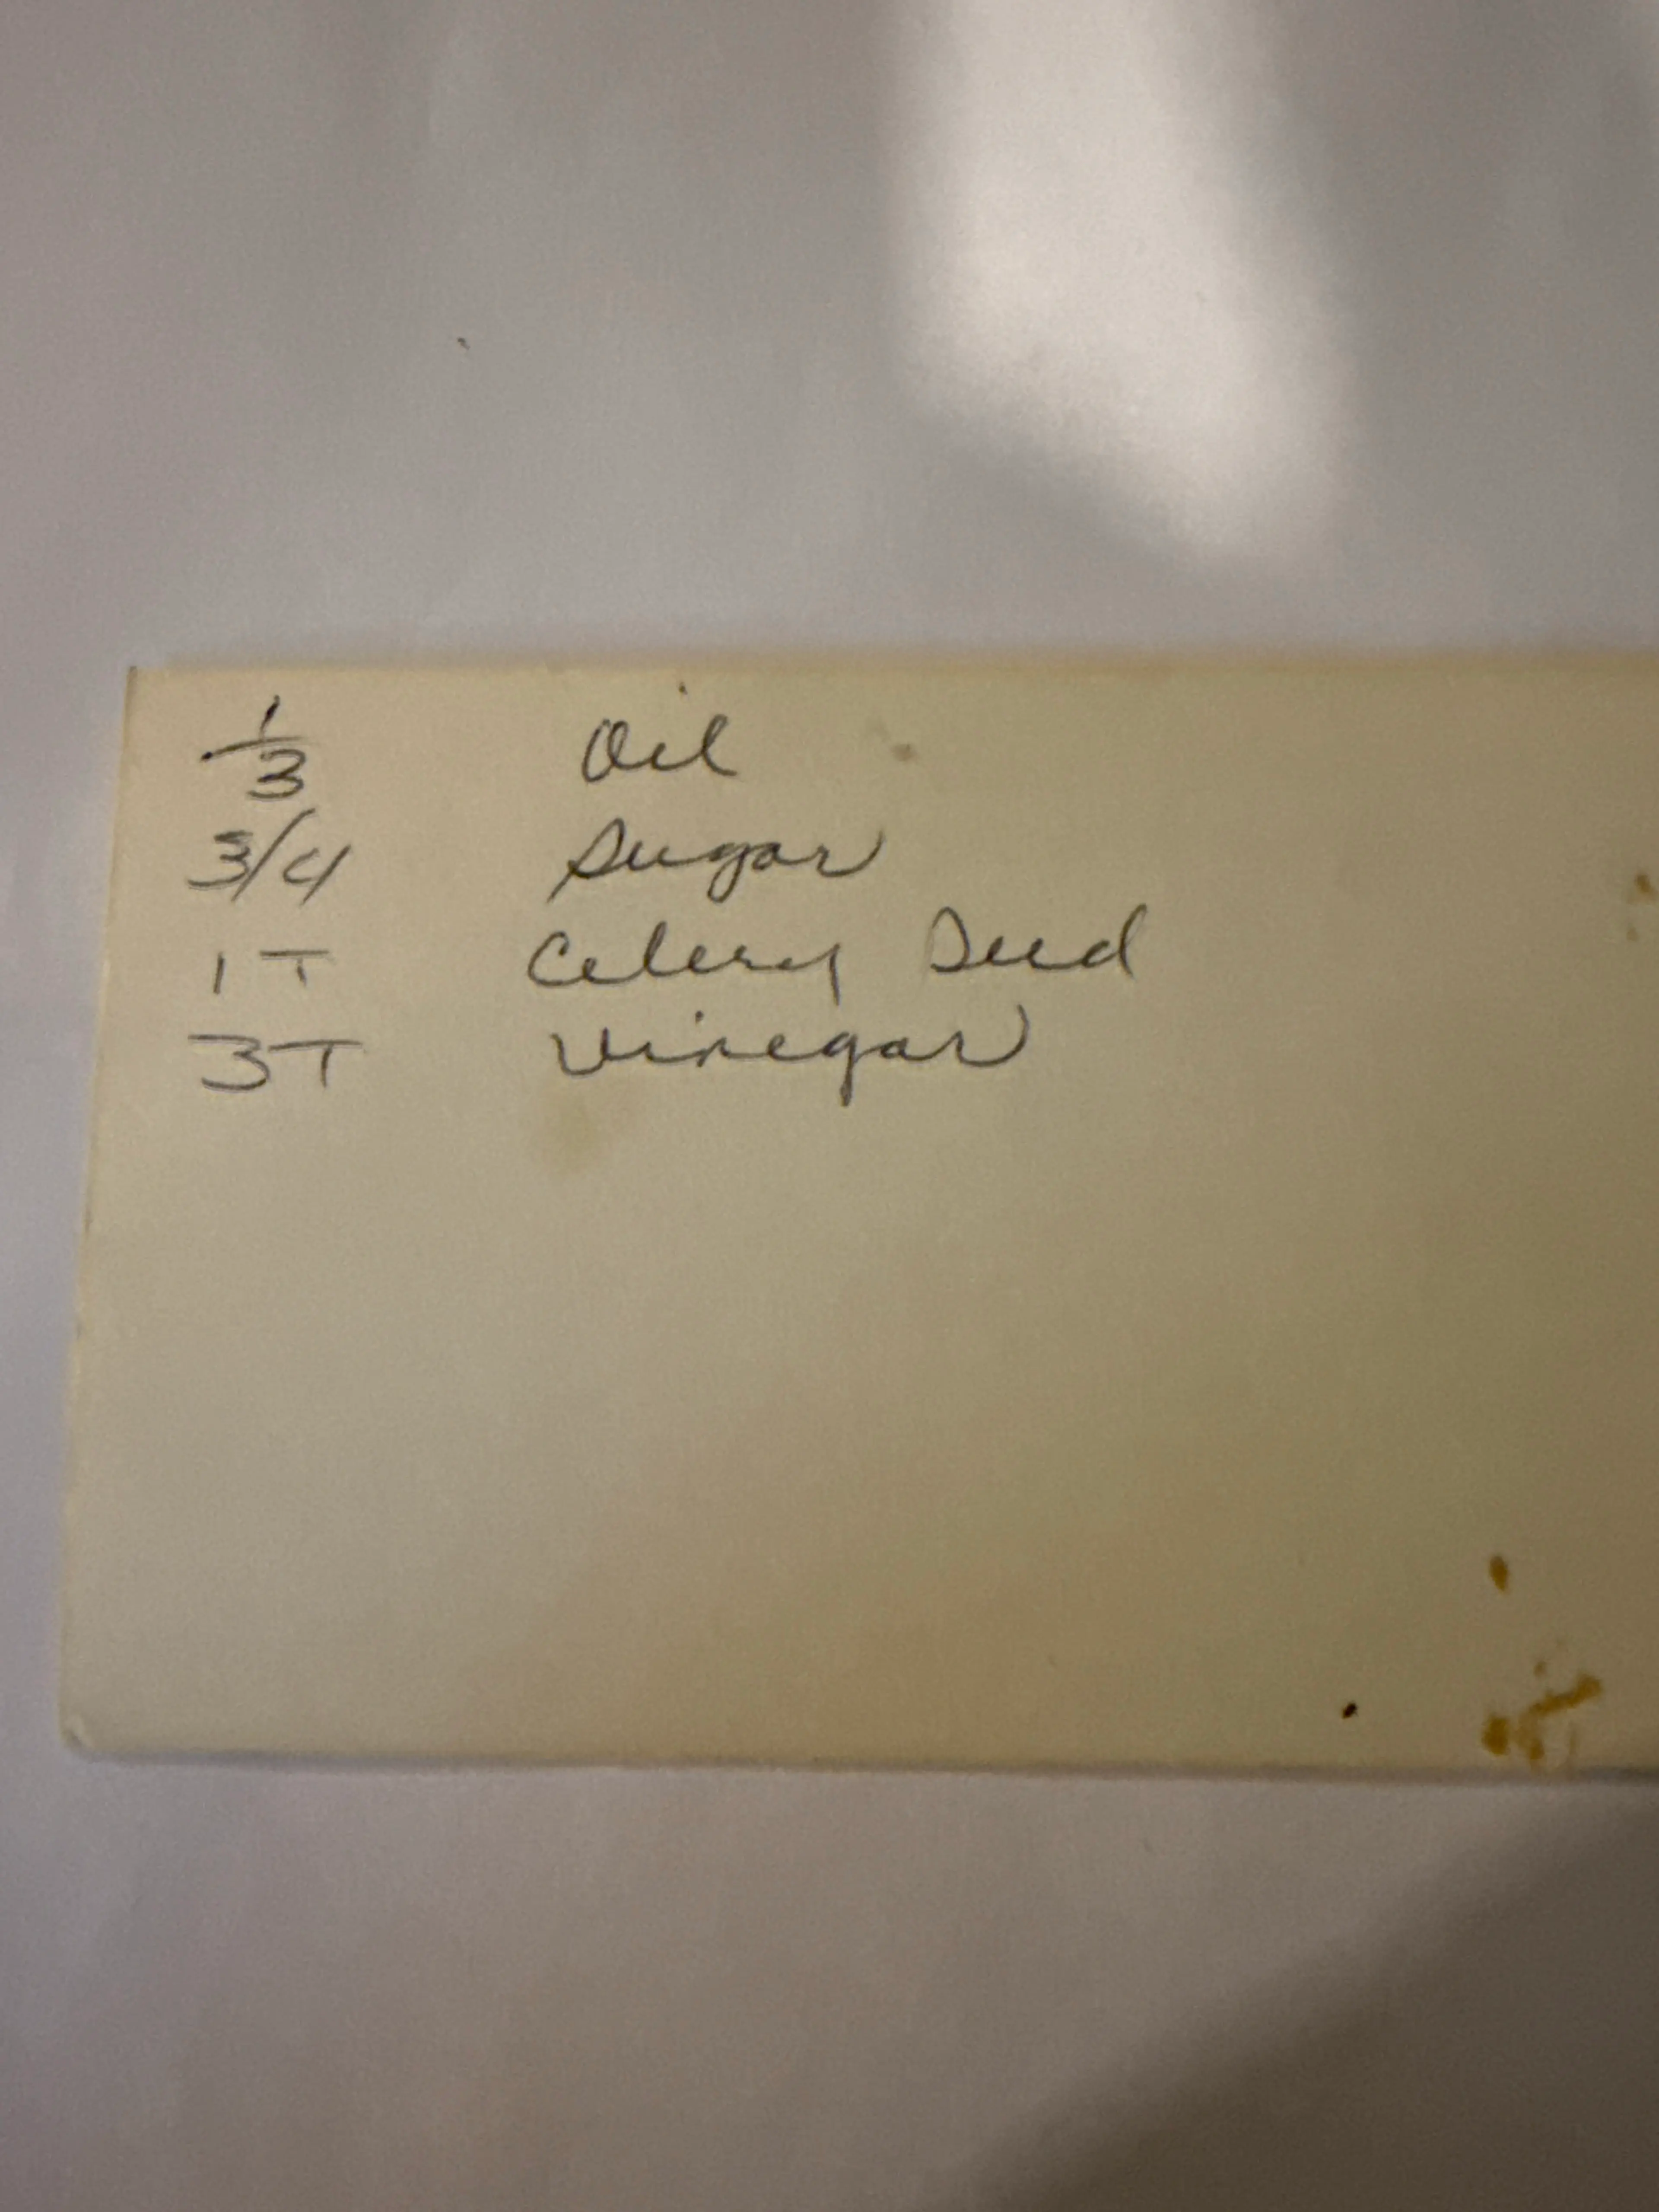 1/3 Oil
3/4 Sugar
1 T Celery Seed
3T Vinegar